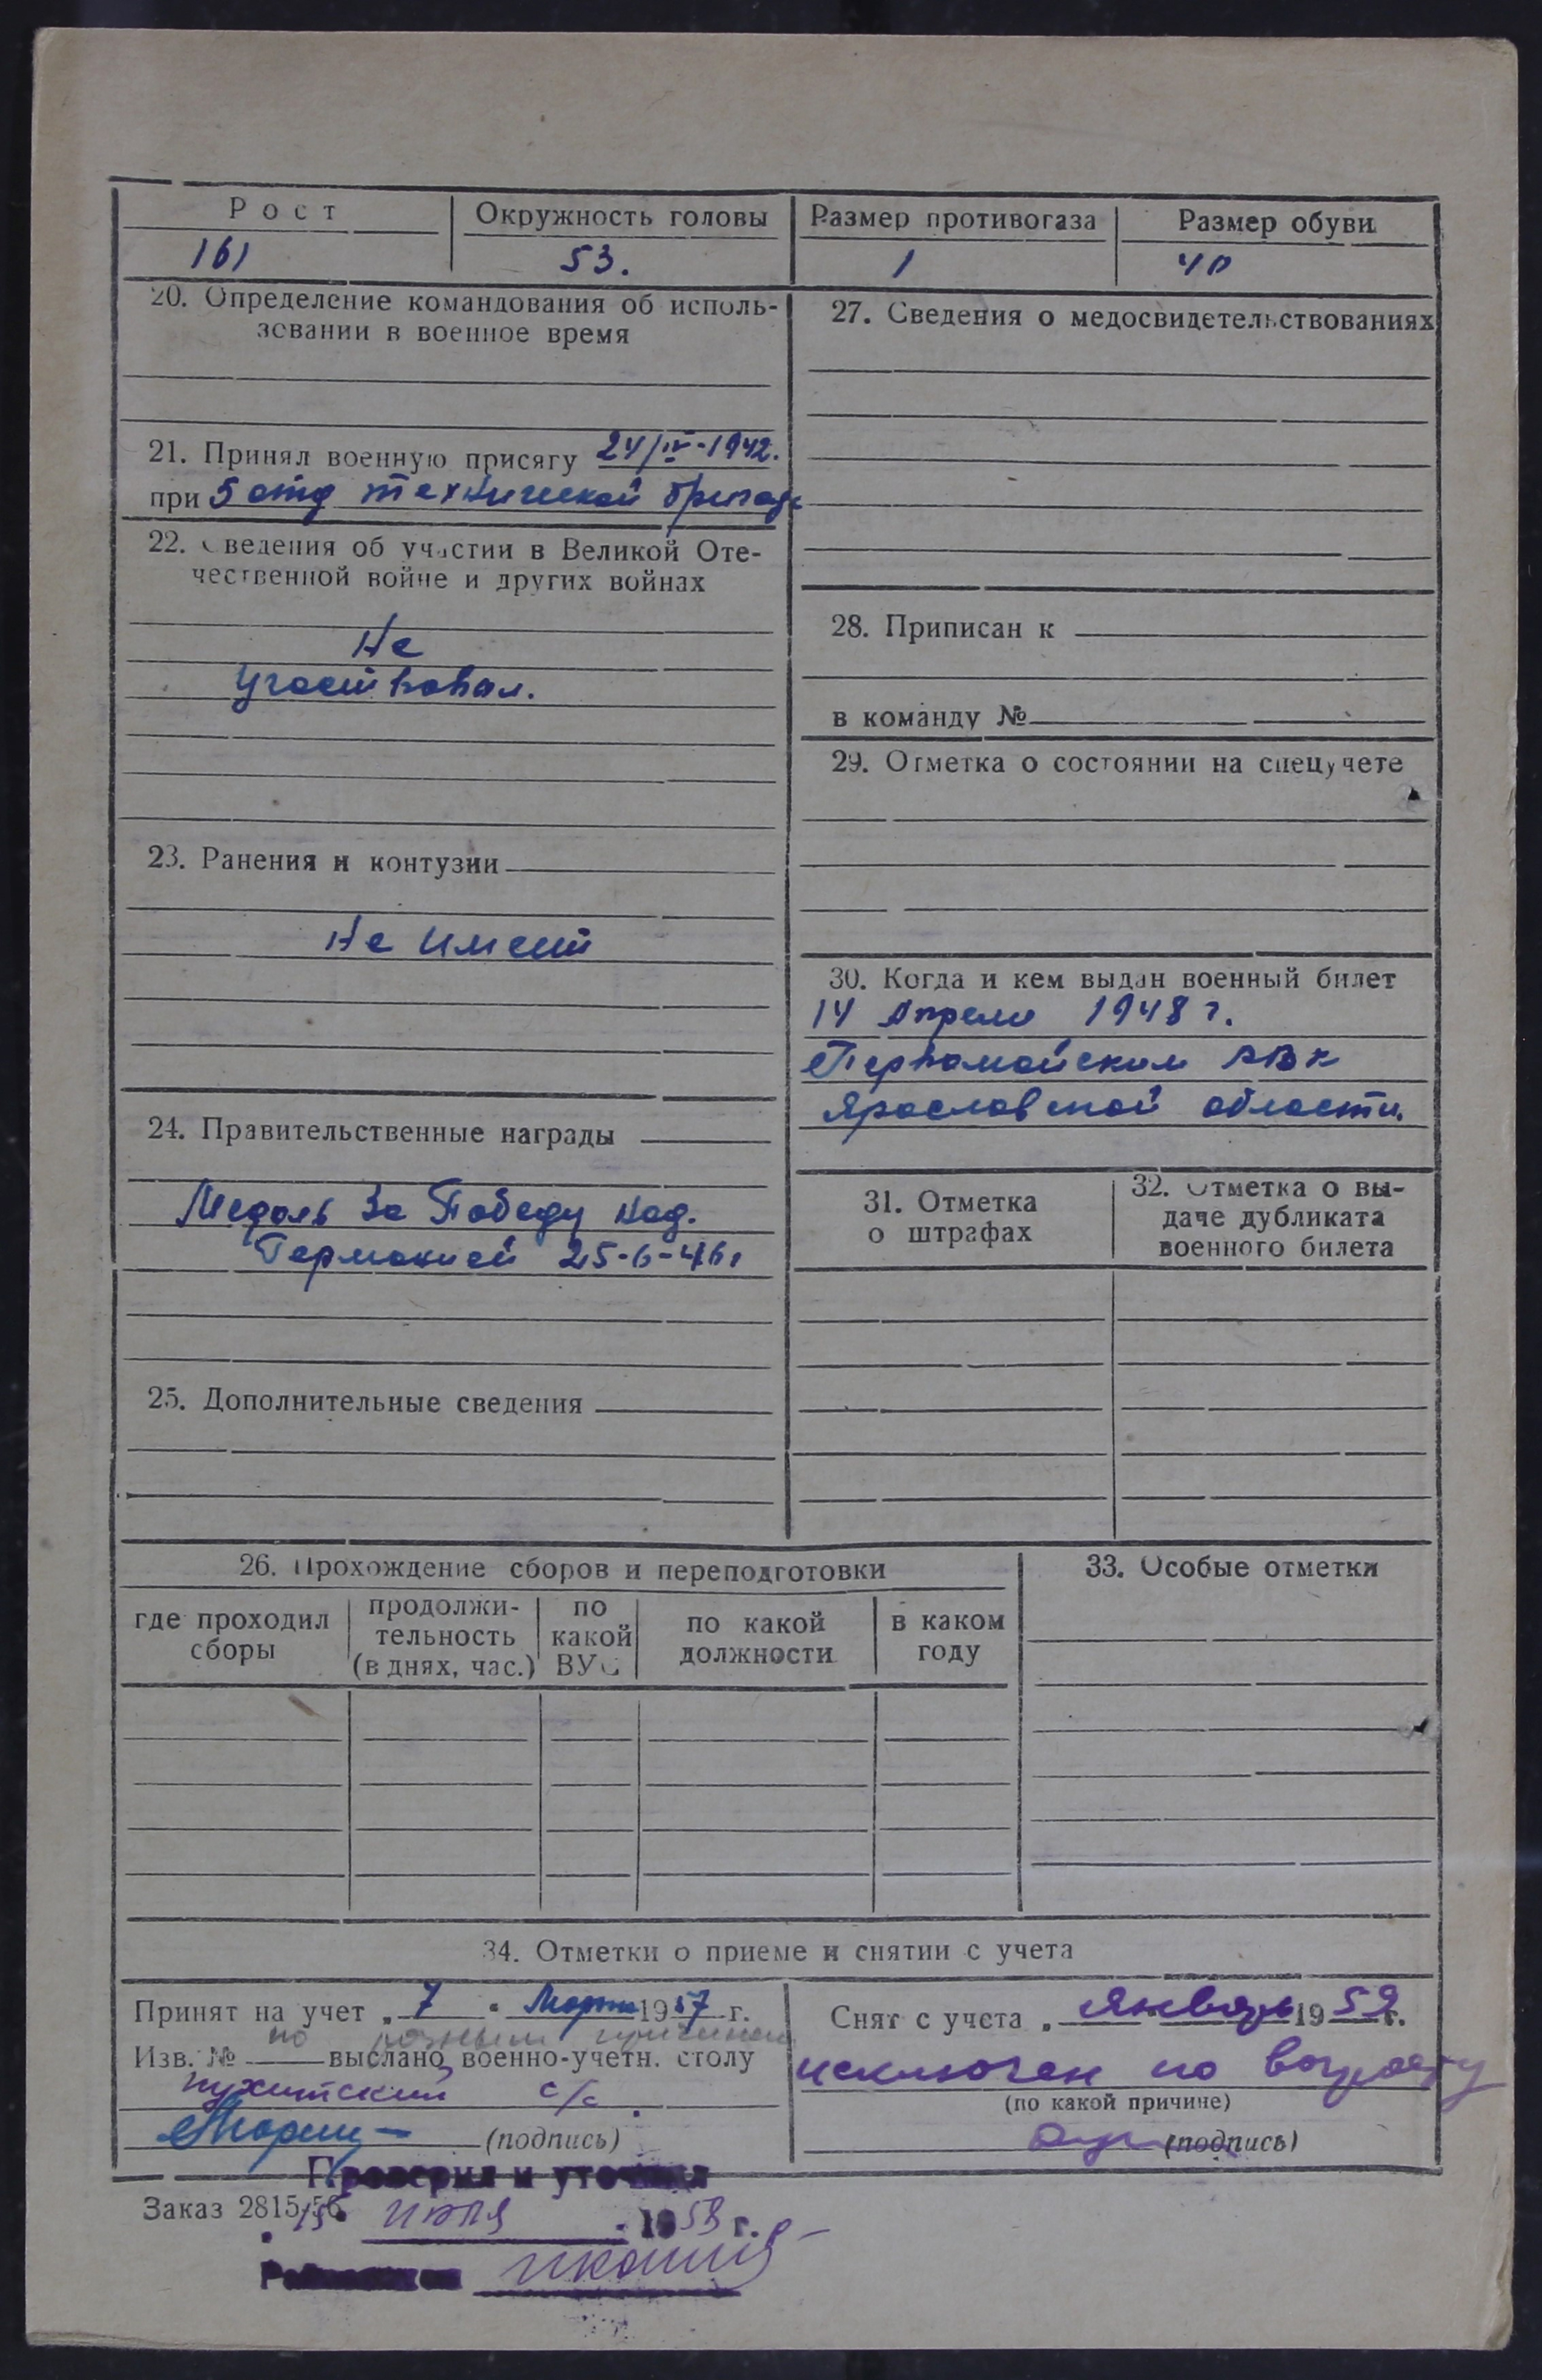 Рост
Окружность головы
Размер противогаза
Размер обуви
161
53.
1
40
20. Определение командования об исполь-
зовании в военное время
21. Принял военную присягу 24/IV-1942.
при 5 отд технической бригаде
22. Сведения об участии в Великой Оте-
чественной войне и других войнах
Не
участвовал.
23. Ранения и контузии
Не имеет
24. Правительственные награды
Медаль За Победу над.
Германией 25-6-46г
25. Дополнительные сведения
27. Сведения о медосвидетельствованиях
28. Приписан к
в команду №
29. Отметка о состоянии на спецучете
30. Когда и кем выдан военный билет
14 Апреля 1948 г.
Первомайским РВК
Ярославской области.
31. Отметка
о штрафах
32. Отметка о вы-
даче дубликата
военного билета
26. Прохождение сборов и переподготовки
где проходил
сборы
продолжи-
тельность
(в днях, час.)
по
какой
ВУС
по какой
должности
в каком
году
33. Особые отметки
34. Отметки о приеме и снятии с учета
Принят на учет „ 7 " Марта 1957 г.
по разным причинам
Изв. № выслано военно-учетн. столу
с/с
(подпись)
Снят с учета „ Январь 1959 г.
исключен по возрасту
(по какой причине)
(подпись)
Проверил и уточнил
Заказ 2815-56
15 июля 1958 г.